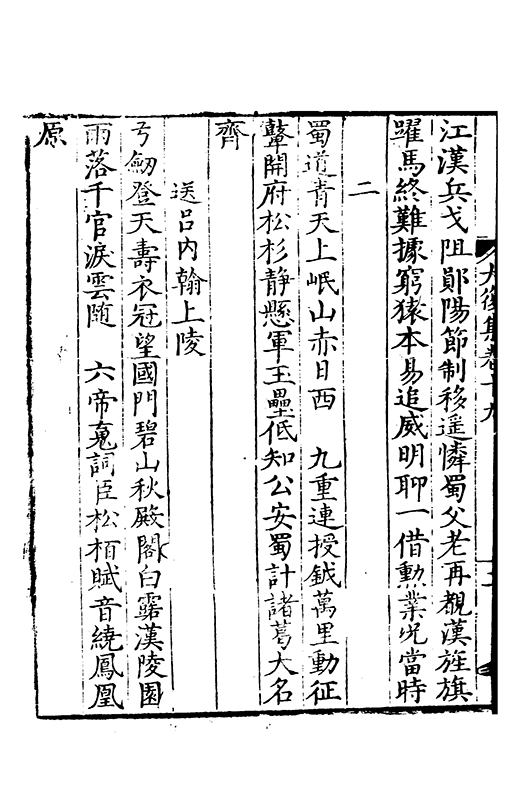 江漢兵戈阻鄖陽節制移遥憐蜀父老再覩漢旌旗
躍馬終難據窮猿本易追威明聊一借勲業况當時
二
蜀道青天上岷山赤日西 九重連授鉞萬里動征
鼙開府松杉静懸軍玉壘低知公安蜀計諸葛大名
齊
送吕内翰上陵
弓劒登天壽衣冠望國門碧山秋殿閣白露漢陵園
雨落千官淚雲随 六帝䰟詞臣松栢賦音繞鳳凰
原